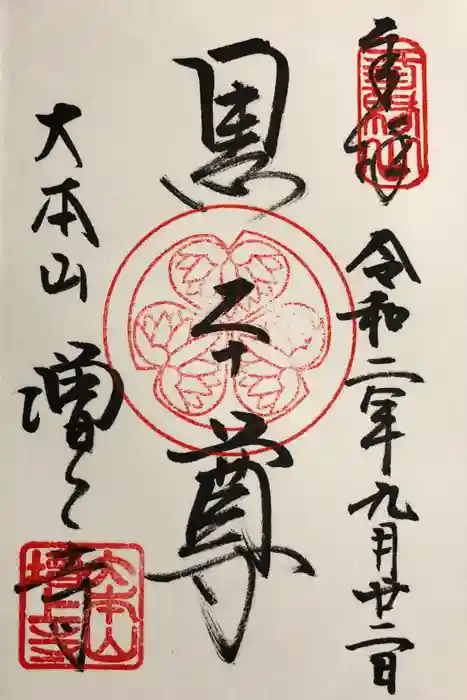 奉拝
令和二年九月廿二日
黒本尊
大本山
増上寺
大本山
増上寺